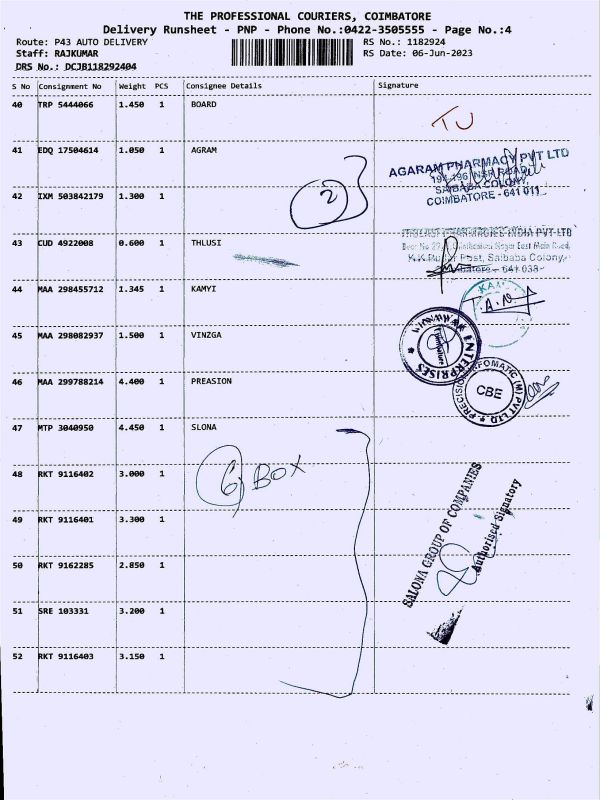 THE PROFESSIONAL COURIERS, COIMBATORE
Delivery Runsheet - PNP - Phone No.:0422-3505555 - Page No.:4
Route: P43 AUTO DELIVERY
RS No.: 1182924
Staff: RAJKUMAR
RS Date: 06-Jun-2023
DRS No.: DCJB118292404
S No Consignment No Weight PCS Consignee Details Signature
40 TRP 5444066 1.450 1 BOARD
TJ
41 EDQ 17504614 1.050 1 AGRAM
AGARAM PHARMACY PVT LTD
SAIBABA COLONY,
COIMBATORE - 641 011
42 IXM 503842179 1.300 1
2
43 CUD 4922008 0.600 1 THLUSI
INDIA PVT-LTD
East Main Road,
Post, Saibaba Colony,
641 038
44 MAA 298455712 1.345 1 KAMYI
KA
45 MAA 298082937 1.500 1 VINZGA
ENTERPRISES
46 MAA 299788214 4.400 1 PREASION
PRECISION INFOMATIC (M) PVT LTD
CBE
47 MTP 3040950 4.450 1 SLONA
6 BOX
48 RKT 9116402 3.000 1
49 RKT 9116401 3.300 1
50 RKT 9162285 2.850 1
51 SRE 103331 3.200 1
52 RKT 9116403 3.150 1
SALONA GROUP OF COMPANIES
Authorised Signatory